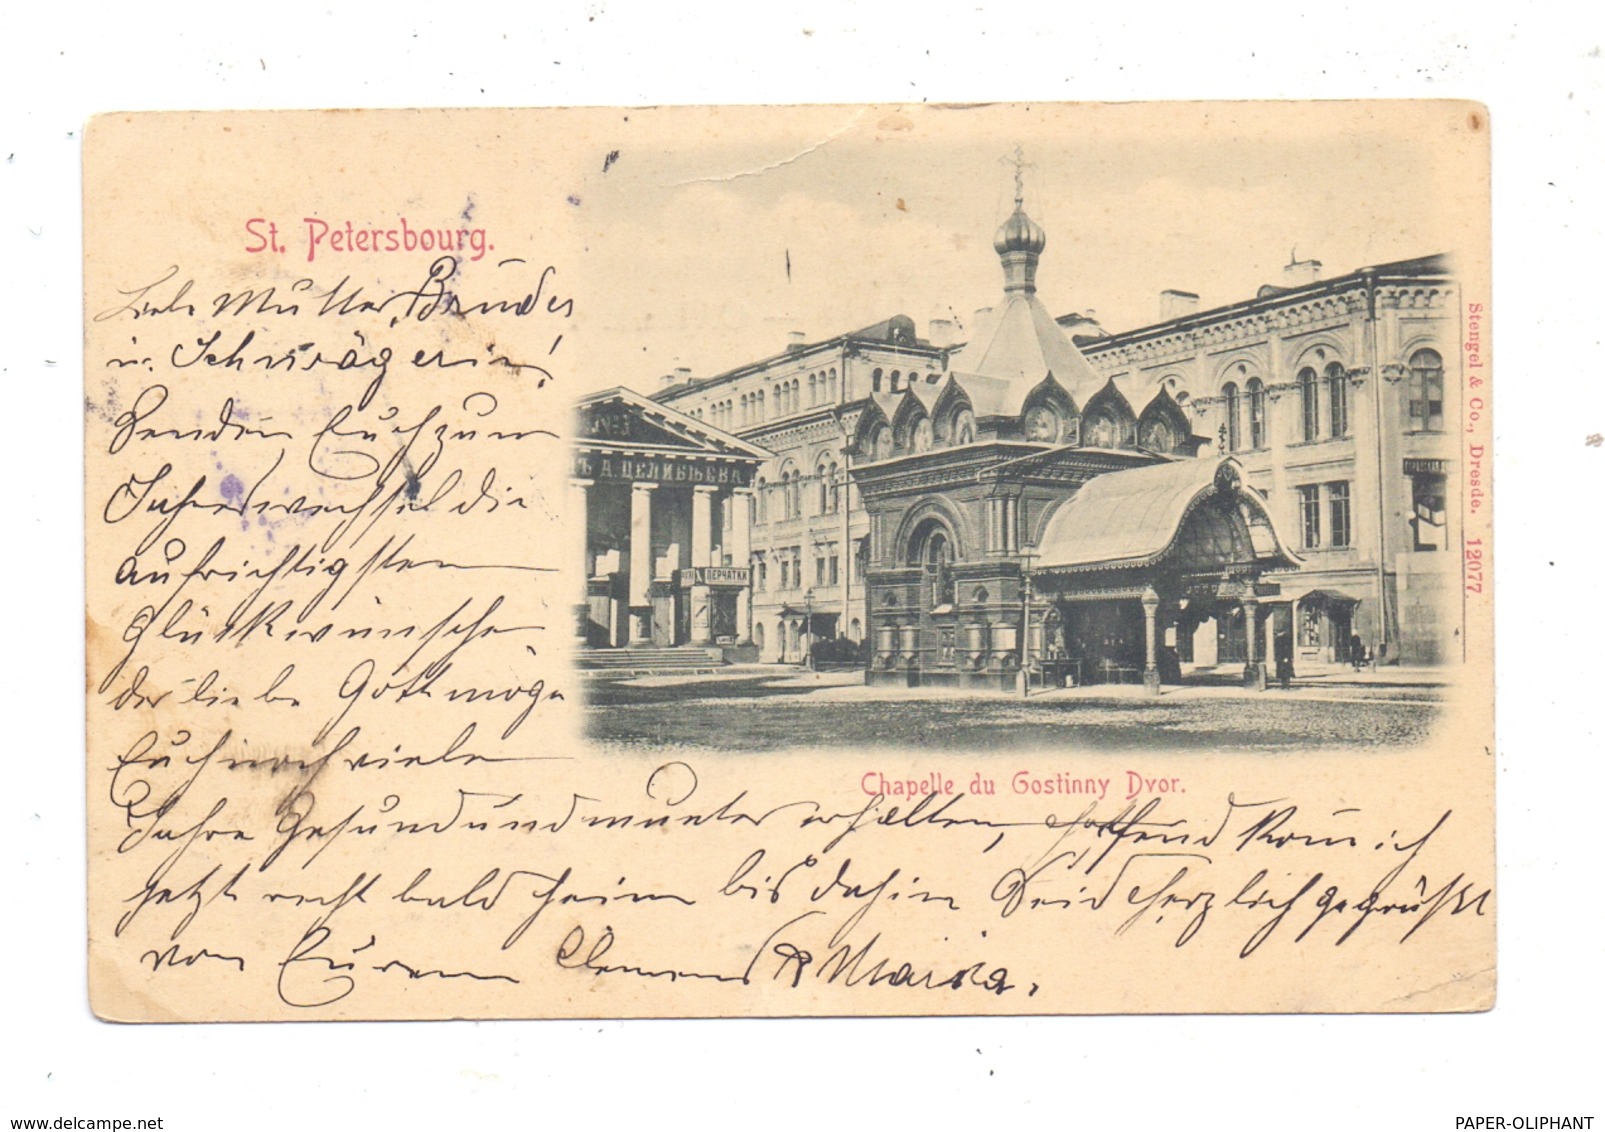 St. Petersbourg.
Liebe Mutter, Bruder
u. Schwägerin!
Senden Euch zum
Jahreswechsel die
aufrichtigsten
Glückwünsche
der liebe Gott möge
Euch noch viele
Jahre Gesund und munter erhalten, hoffend kom ich
jetzt recht bald heim bis dahin Seid herzlich gegrüßt
von Eurem Clemens & Maria.
№ 3
Ъ А. ЦЕЛИБѢЕВА
ПЕРЧАТКИ
Chapelle du Gostinny Dvor.
Stengel & Co., Dresde. 12077.
www.delcampe.net
PAPER-OLIPHANT